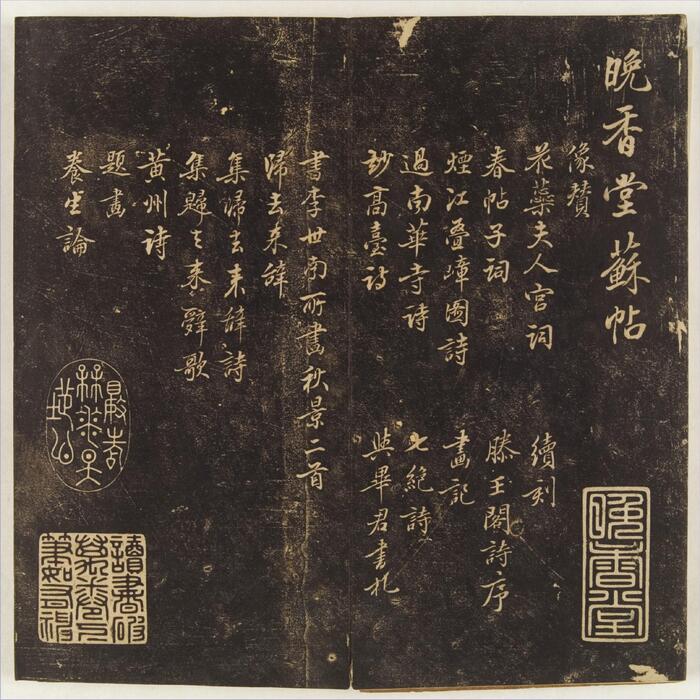 晚香堂蘇帖
像贊
花蘂夫人宮詞
續刻
春帖子詞
滕王閣詩序
煙江疊嶂圖詩
畫記
過南華寺詩
七絕詩
妙高臺詩
與畢君書札
書李世南所畫秋景二首
歸去來辭
集歸去來辭詩
集歸去來辭歌
黃州詩
題畫
養生論
晚香堂
讀書破萬卷下筆如有神